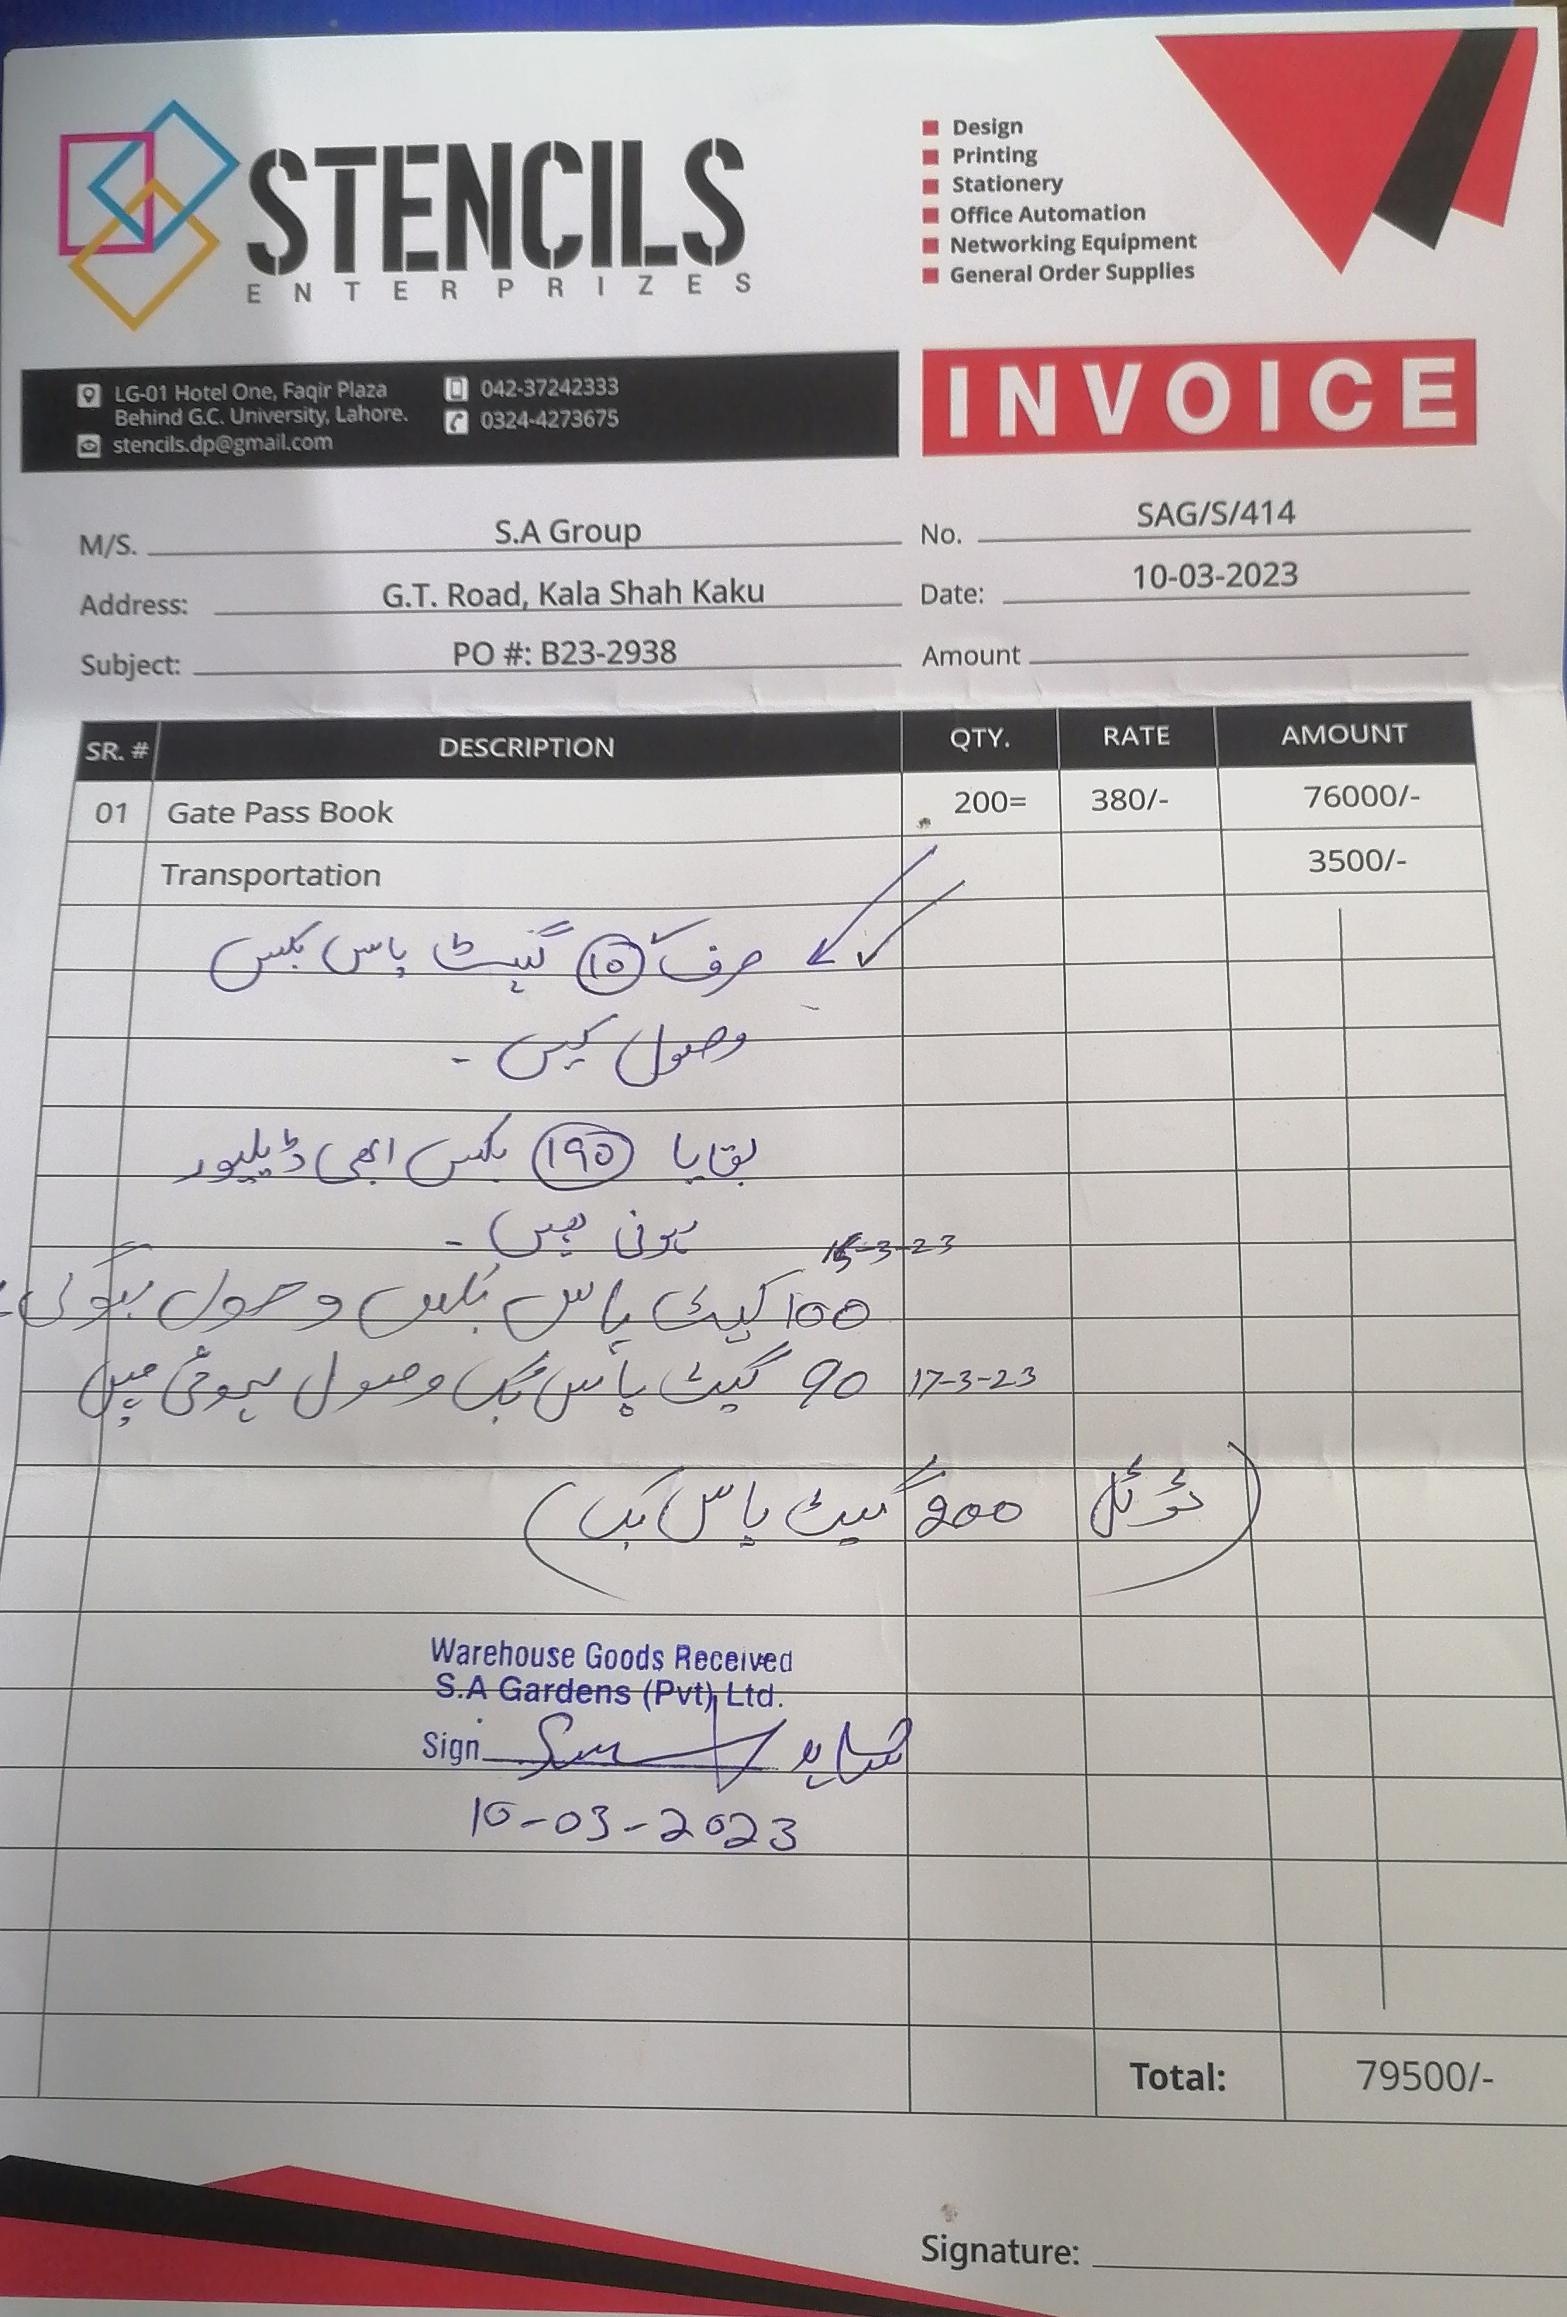 STENCILS
ENTERPRIZES
Design
Printing
Stationery
Office Automation
Networking Equipment
General Order Supplies
LG-01 Hotel One, Faqir Plaza
Behind G.C. University, Lahore.
stencils.dp@gmail.com
042-37242333
0324-4273675
INVOICE
M/S. S.A Group
No. SAG/S/414
Address: G.T. Road, Kala Shah Kaku
Date: 10-03-2023
Subject: PO #: B23-2938
Amount
SR. # DESCRIPTION QTY. RATE AMOUNT
01 Gate Pass Book 200= 380/- 76000/-
Transportation 3500/-
صرف 10 گیٹ پاس بکس
وصول کیں ۔
بقایا 190 بکس ابھی ڈیلیور
ہونی ہیں ۔
15-3-23
100 گیٹ پاس بکس وصول ہوگئی
17-3-23 90 گیٹ پاس بک وصول ہوئی ہیں
(ٹوٹل 200 گیٹ پاس بک)
Warehouse Goods Received
S.A Gardens (Pvt) Ltd.
Sign
10-03-2023
Total: 79500/-
Signature: